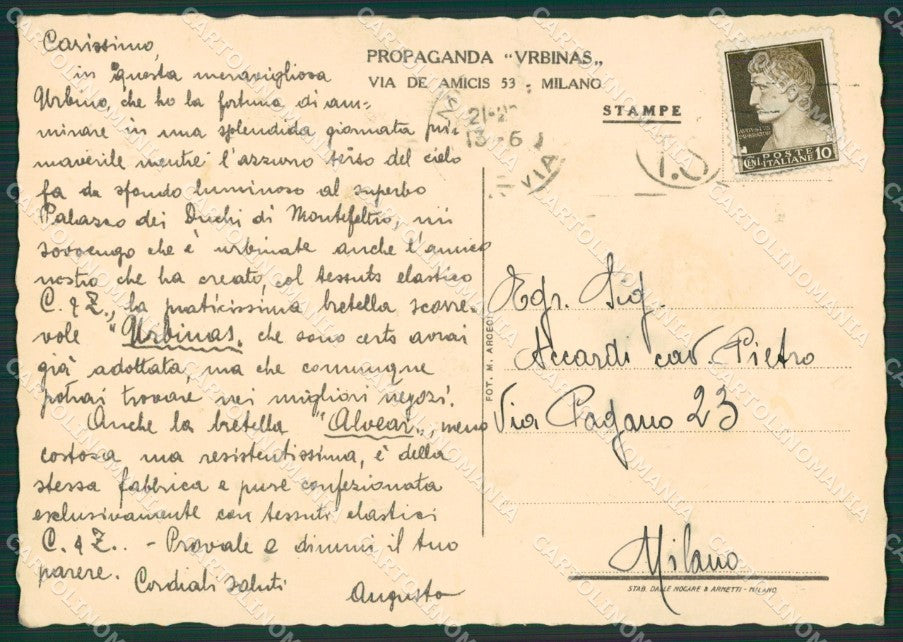 Carissimo,
in questa meravigliosa
Urbino, che ho la fortuna di am=
mirare in una splendida giornata pri=
maverile mentre l'azzurro terso del cielo
fa da sfondo luminoso al superbo
Palazzo dei Duchi di Montefeltro, mi
sovvengo che è urbinate anche l'amico
nostro che ha creato, col tessuto elastico
C. & Z., la praticissima bretella scorre-
vole "Urbinas" che sono certo avrai
già adottata, ma che comunque
potrai trovare nei migliori negozi.
Anche la bretella "Alvear", meno
costosa ma resistentissima, è della
stessa fabbrica e pure confezionata
esclusivamente con tessuti elastici
C. & Z.. - Provale e dimmi il tuo
parere. Cordiali saluti
Augusto
PROPAGANDA "VRBINAS„
VIA DE AMICIS 53 - MILANO
STAMPE
POSTE
ITALIANE
CENT. 10
T.S
VIA
FOT. M. ARGEO
Egr. Sig.
Accardi cav. Pietro
Via Pagano 23
Milano
STAB. DALLE NOGARE & ARMETTI - MILANO
CARTOLINOMANIA